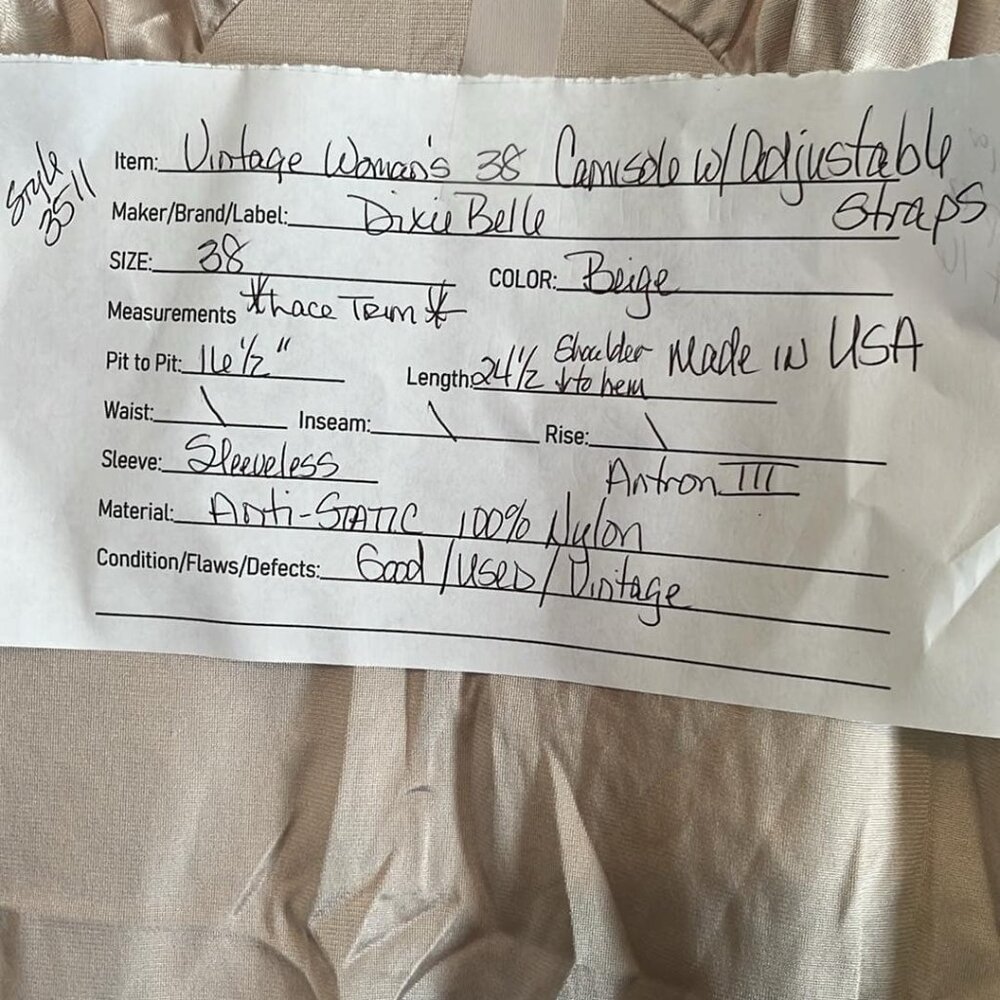 Style
3511
Item: Vintage Woman's 38 Camisole w/ Adjustable
Straps
Maker/Brand/Label: Dixie Belle
SIZE: 38 COLOR: Beige
Measurements *Lace Trim*
Pit to Pit: 16 1/2" Length: 24 1/2 Shoulder to hem Made in USA
Waist: \ Inseam: \ Rise: \
Sleeve: Sleeveless Antron III
Material: Anti-STATIC 100% Nylon
Condition/Flaws/Defects: Good/Used/Vintage